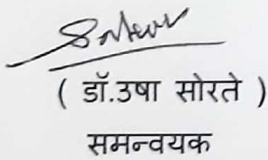 ( डॉ.उषा सोरते )
समन्वयक